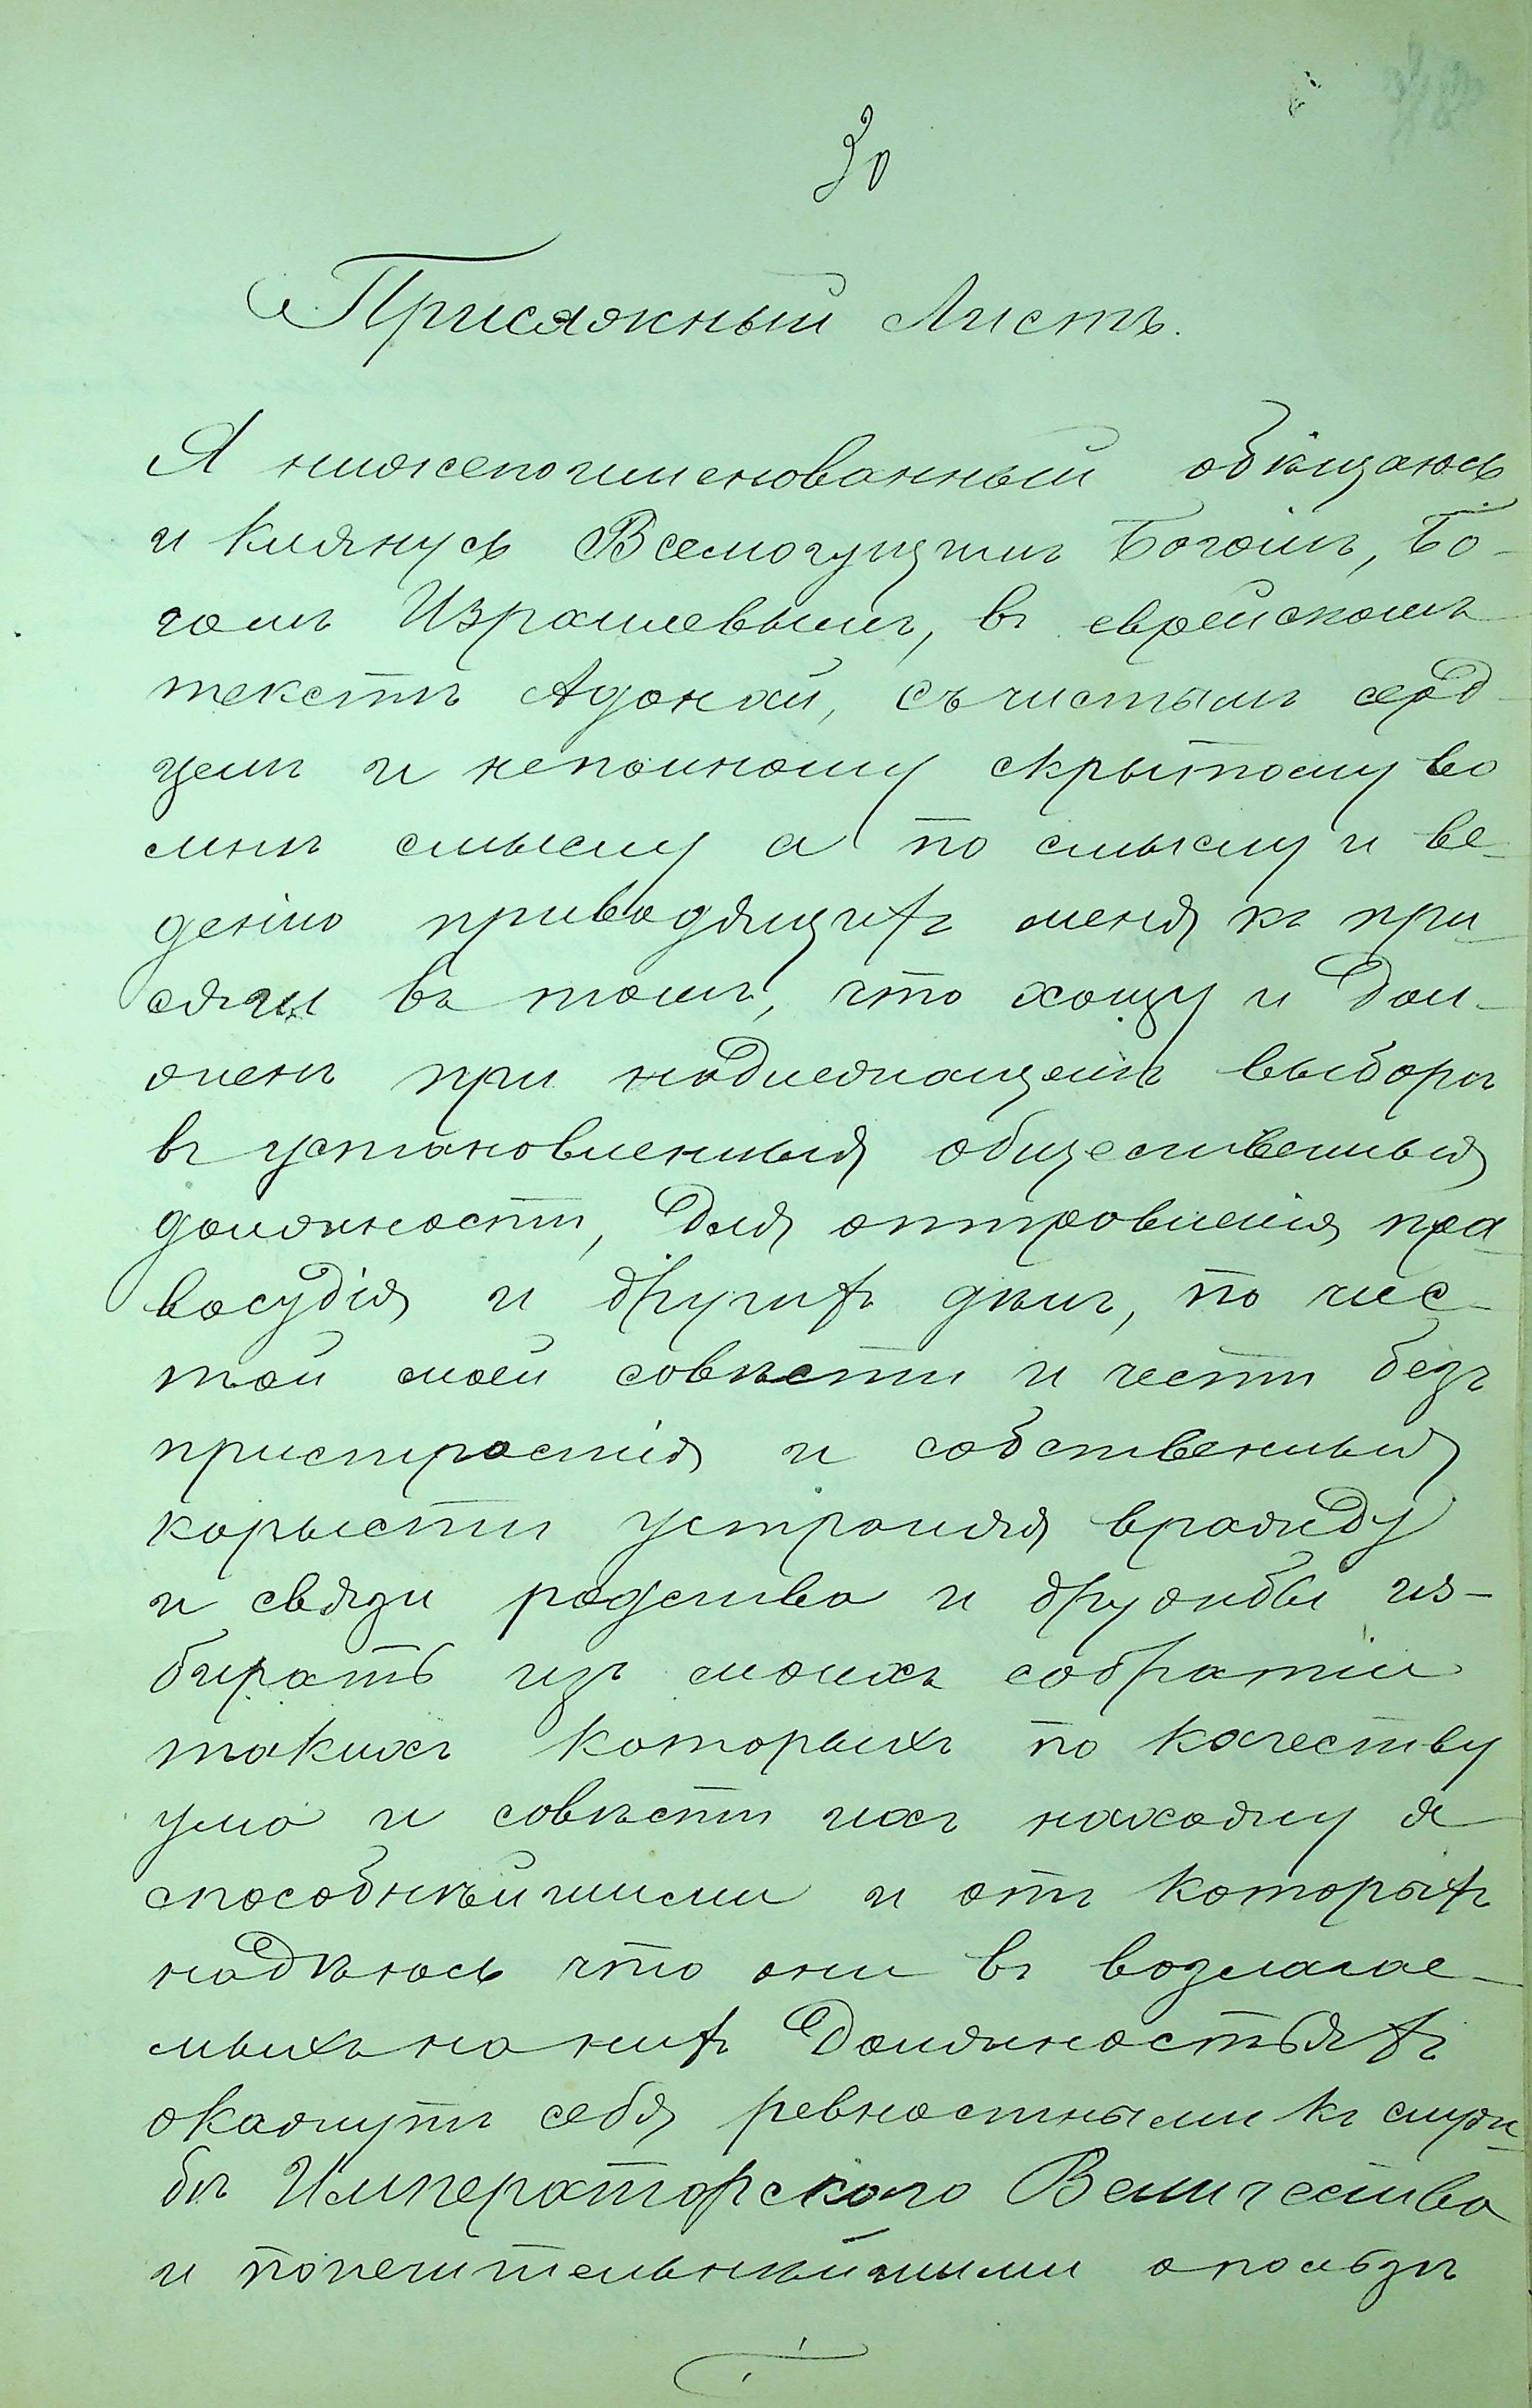 30
Присяжный Листъ.
Я нижепоименованный обѣщаюсь
и клянусь Всемогущимъ Богомъ, Бо-
гомъ Израилевымъ, въ еврейскомъ
текстѣ Адонай, съ чистымъ серд-
цемъ и неполному скрытому во
мнѣ смыслу а по смыслу и ве-
денiю приводящихъ меня къ при-
сяги въ томъ, что хощу и дол-
женъ при надлежащемъ выборѣ
въ установленныя общественныя
должности, для отправленiя пра-
восудiя и другихъ дѣлъ, по чис-
той моей совѣсти и чести безъ
пристрастiя и собственныя
корысти устраняя вражду
и связи родства и дружбы из-
бирать изъ моихъ собратiй
такихъ которыхъ по качеству
ума и совѣсти ихъ нахожу я
способнѣйшими и отъ которыхъ
надѣюсь что они въ возлагае-
мыхъ на нихъ должностьяхъ
окажутъ себя ревностными къ служ-
бѣ Императорскаго Величества
и попечительнѣйшими о пользѣ